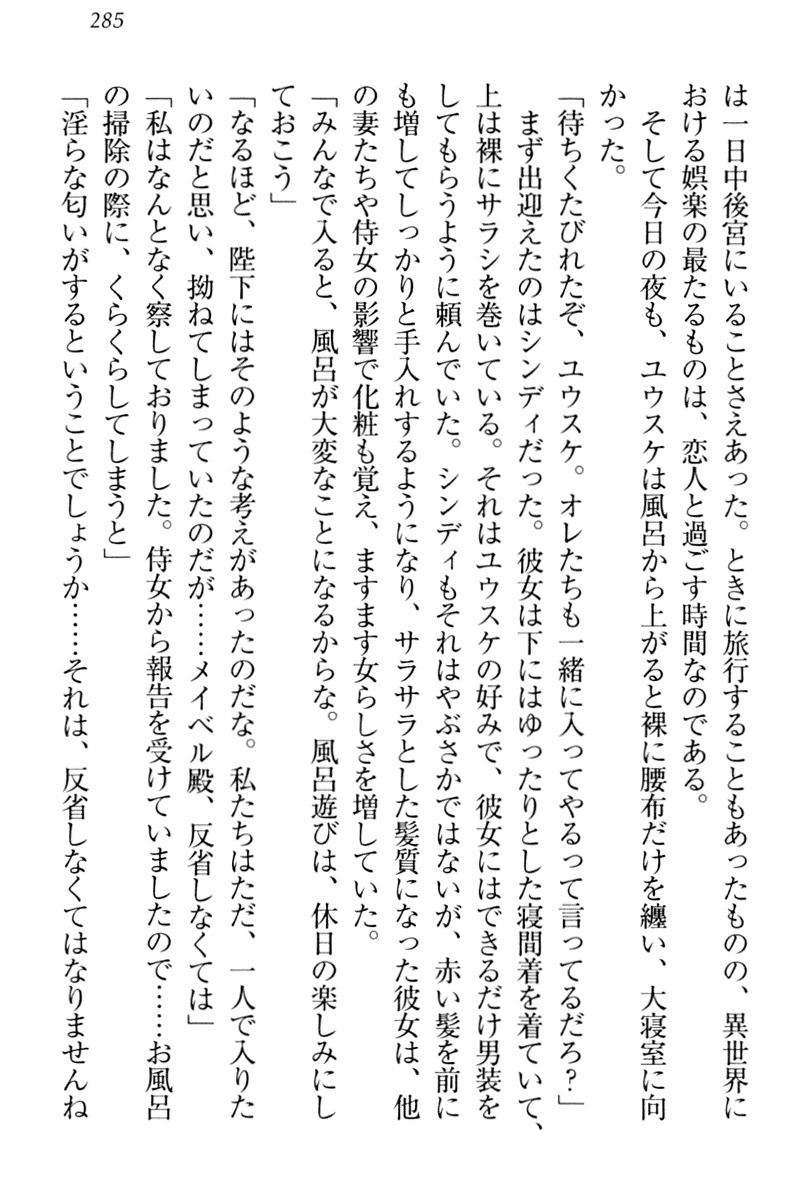 285
は一日中後宮にいることさえあった。ときに旅行することもあったものの、異世界に
おける娯楽の最たるものは、恋人と過ごす時間なのである。
　そして今日の夜も、ユウスケは風呂から上がると裸に腰布だけを纏い、大寝室に向
かった。
「待ちくたびれたぞ、ユウスケ。オレたちも一緒に入ってやるって言ってるだろ？」
　まず出迎えたのはシンディだった。彼女は下にはゆったりとした寝間着を着ていて、
上は裸にサラシを巻いている。それはユウスケの好みで、彼女にはできるだけ男装を
してもらうように頼んでいた。シンディもそれはやぶさかではないが、赤い髪を前に
も増してしっかりと手入れするようになり、サラサラとした髪質になった彼女は、他
の妻たちや侍女の影響で化粧も覚え、ますます女らしさを増していた。
「みんなで入ると、風呂が大変なことになるからな。風呂遊びは、休日の楽しみにし
ておこう」
「なるほど、陛下にはそのような考えがあったのだな。私たちはただ、一人で入りた
いのだと思い、拗ねてしまっていたのだが……メイベル殿、反省しなくては」
「私はなんとなく察しておりました。侍女から報告を受けていましたので……お風呂
の掃除の際に、くらくらしてしまうと」
「淫らな匂いがするということでしょうか……それは、反省しなくてはなりませんね